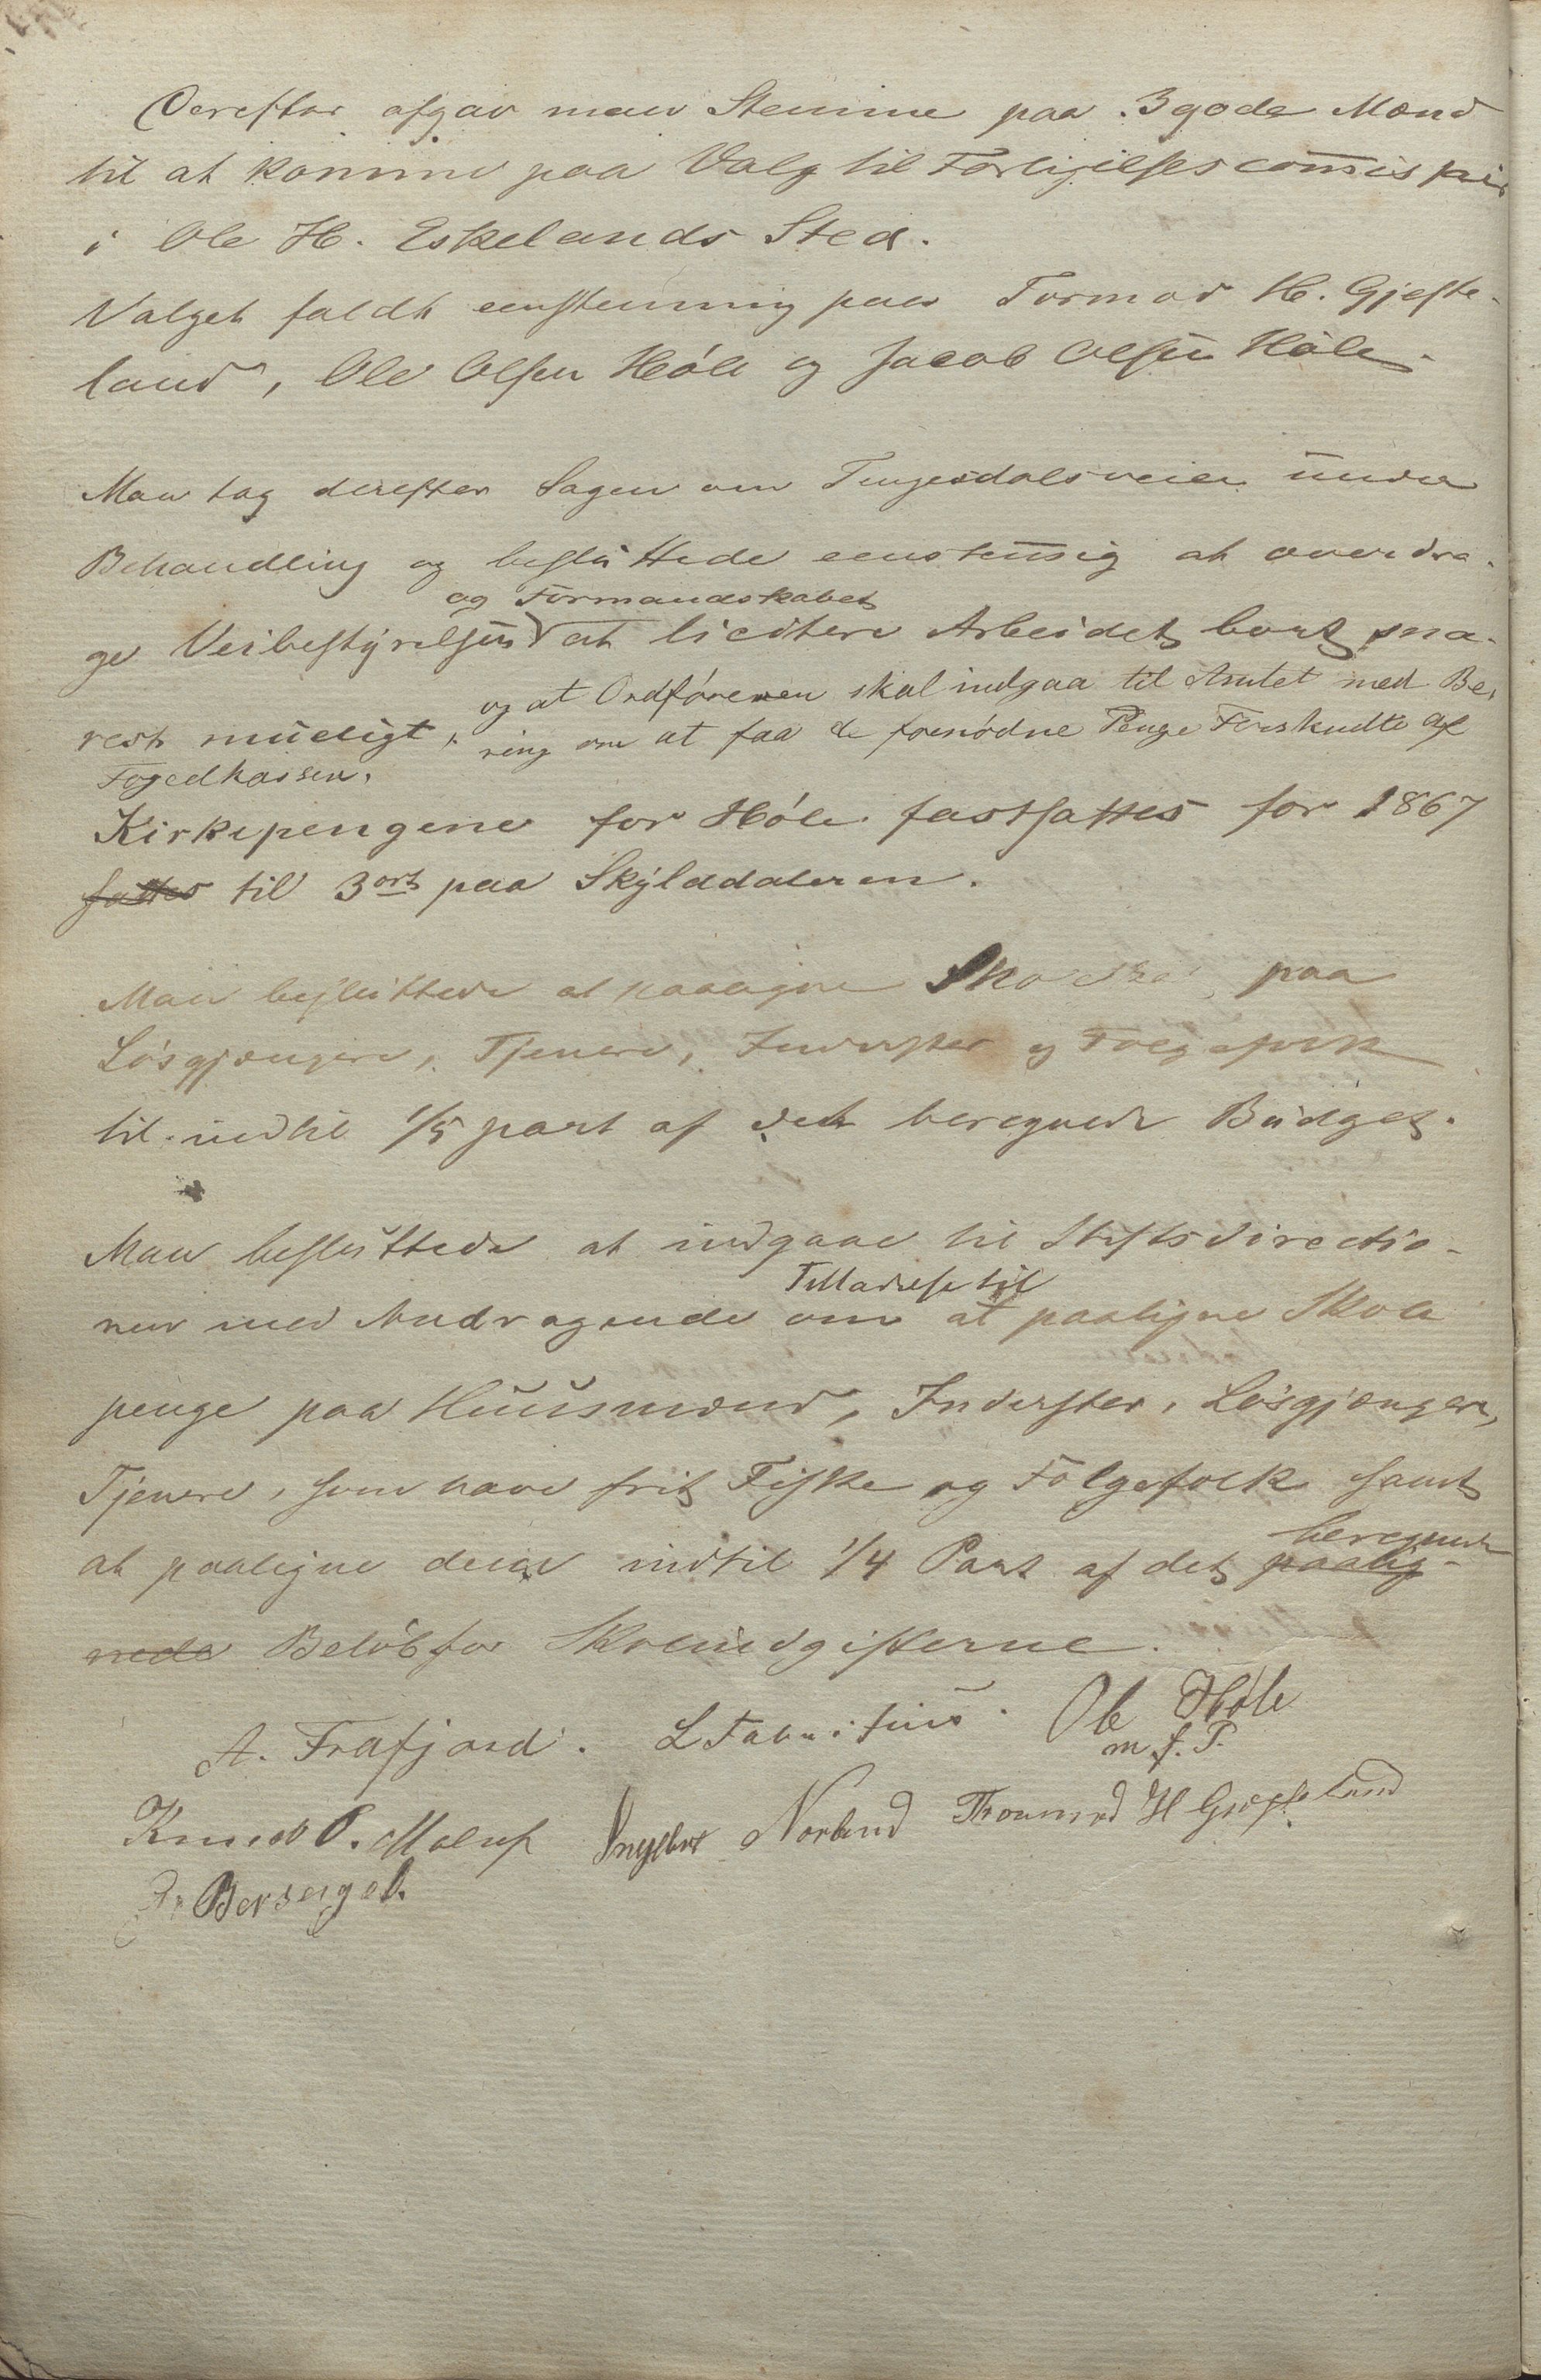 Derefter afgav man Stemme paa 3 gode Mænd
til at komme paa Valg til Forligelsescom̅is
i Ole H. Eskelands Sted.
Valget faldt eenstemmig paa Tormod H. Gjeste-
land, Ole Olsen Høle og Jacob Olsen Høle.
Man tog derefter Sagen om Tengesdalsveien under
Behandling og besluttede eenstem̅ig at overdra-
og Formandskabet
ge Veibestyrelsen at licitere Arbeidet bort sna-
og at Ordføreren skal indgaa til Amtet med Be-
rest mueligt,
ring om at faa de fornødne Penge Forskudte af
Fogedkassen.
Kirkepengene for Høle fastsattes for 1867
sattes til 3 ort paa Skylddaleren.
Man besluttede at paaligne paa
Løsgjængere, Tjenere, Inderster og Følgefolk
til indtil 1/5 part af det beregnede Budget.
Man besluttede at indgaae til Stiftsdirectio-
Tilladelse til
nen med Andragende om at paaligne Skole
penge paa Huusmænd, Inderster, Løsgjængere,
Tjenere, som have frit Fiske og Følgefolk samt
beregnede
at paaligne disse indtil 1/4 Part af det paalig-
nede Beløb for Skoleudgifterne.
A. Frafjord. L Fabritius. Ole Høle
m. f. P.
Knud P. Molaug Ingebret Norland Thormod H Gjesteland
Bersagel.